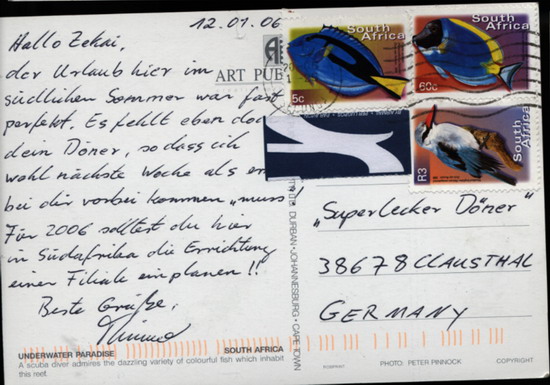 12.01.06
Hallo Zekai,
der Urlaub hier im
südlichen Sommer war fast
perfekt. Es fehlt eben doch
dein Döner, so dass ich
wohl nächste Woche als er
bei dir vorbei kommen "muss"!
Für 2006 solltest du hier
in Südafrika die Errichtung
einer Filiale einplanen!!
Beste Grüße,
UNDERWATER PARADISE SOUTH AFRICA
A scuba diver admires the dazzling variety of colourful fish which inhabit
this reef.
ART PUB
DURBAN • JOHANNESBURG • CAPE TOWN
South Africa
5c
South Africa
60c
South Africa
R3
"Superlecker Döner"
38678 CLAUSTHAL
GERMANY
PHOTO: PETER PINNOCK